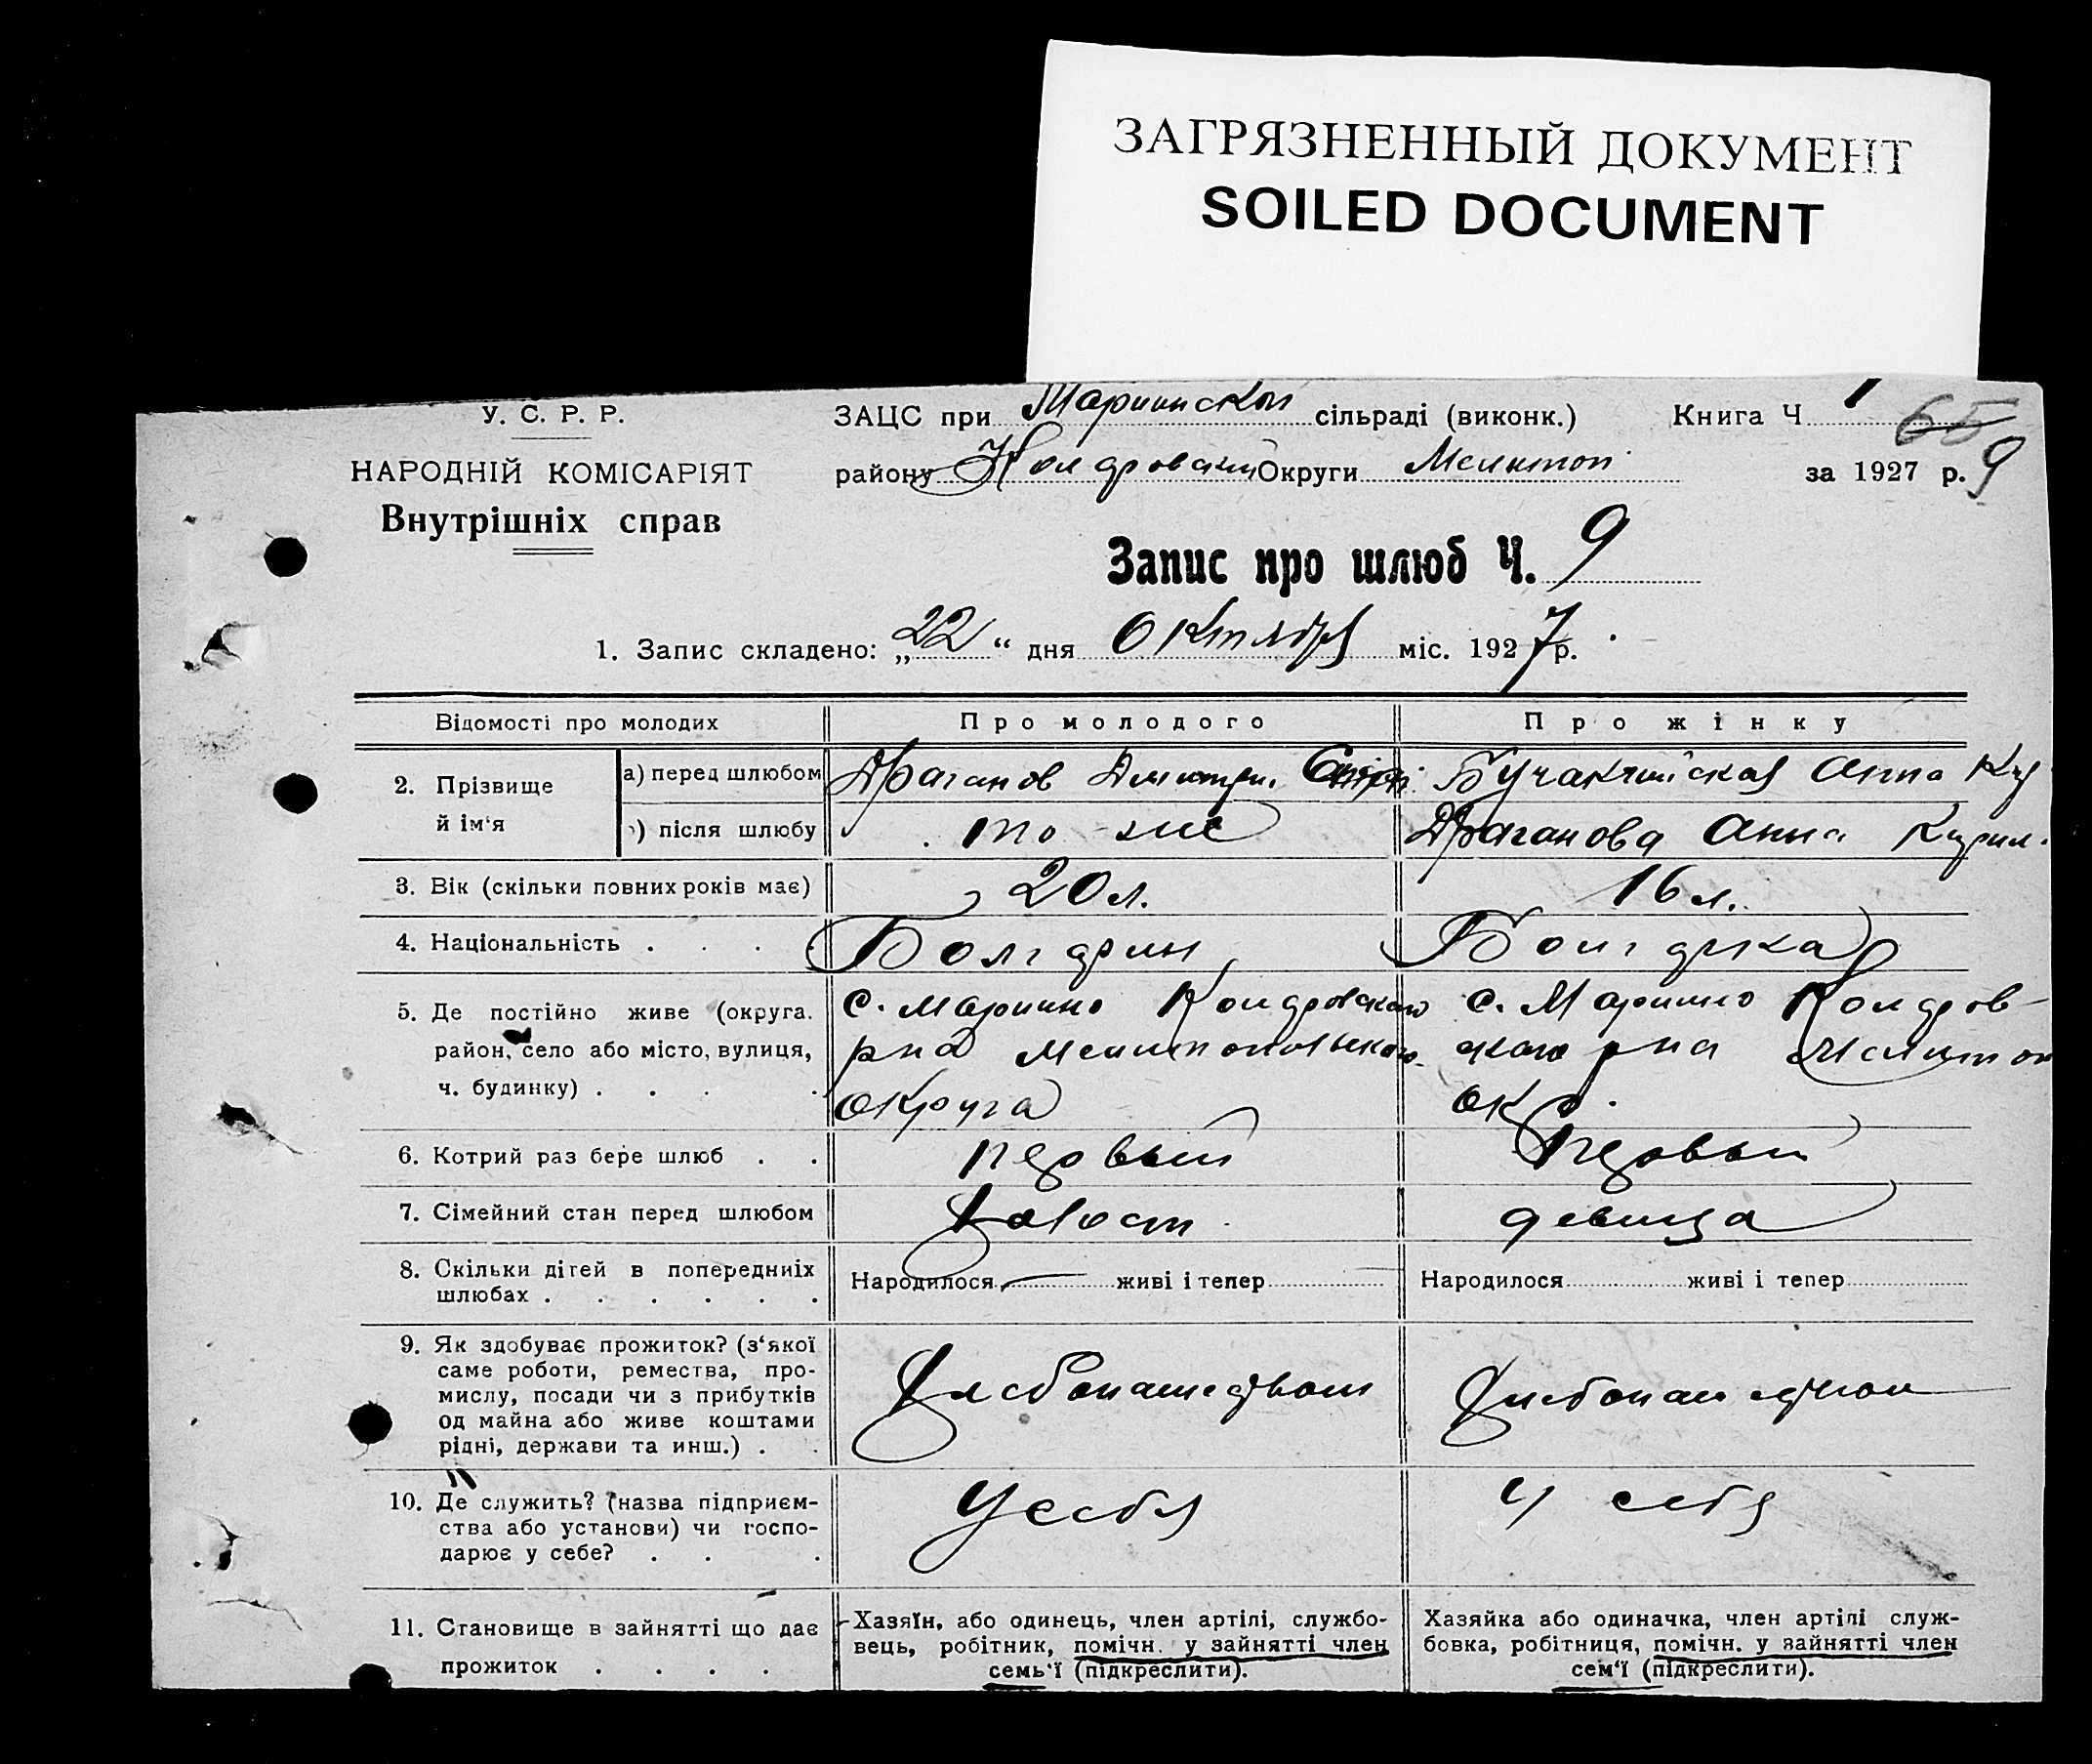 ЗАГРЯЗНЕННЫЙ ДОКУМЕНТ
SOILED DOCUMENT
У. С. Р. Р.
НАРОДНІЙ КОМІСАРІЯТ
Внутрішніх справ
ЗАЦС при Мариинской сільраді (виконк.) Книга Ч 1
65
району Округи Мелитоп. за 1927 р. 9
Запис про шлюб Ч. 9
1. Запис складено: „22“ дня Октября міс. 1927 р.
Відомості про молодих Про молодого Про жінку
2. Прізвище й ім‘я
а) перед шлюбом Драганов Дмитри. Анна Ку
) після шлюбу то же Драганова Анна Курил.
3. Вік (скільки повних років має) 20 л. 16 л.
4. Національність . . . . Болгарин Болгарка
5. Де постійно живе (округа.
район, село або місто, вулиця,
ч. будинку) . . . .
с. Марино Колдровского
рна Мелитопольского
округа
с. Марино Колдров-
ского рна Мелитоп
ок.
6. Котрий раз бере шлюб . . первый первый
7. Сімейний стан перед шлюбом Холост девица
8. Скільки дітей в попередніх
шлюбах . . . . . .
Народилося — живі і тепер
Народилося живі і тепер
9. Як здобуває прожиток? (з‘якої
саме роботи, ремества, про-
мислу, посади чи з прибутків
од майна або живе коштами
рідні, держави та инш.) . .
Хлебопашеством Хлебопашеством
10. Де служить? (назва підприєм-
ства або установи) чи госпо-
дарює у себе? . . .
У себя У себя
11. Становище в зайнятті що дає
прожиток . . . .
Хазяїн, або одинець, член артілі, службо-
вець, робітник, помічн. у зайнятті член
семь‘ї (підкреслити).
Хазяйка або одиначка, член артілі служ-
бовка, робітниця, помічн. у зайнятті член
сем‘ї (підкреслити).